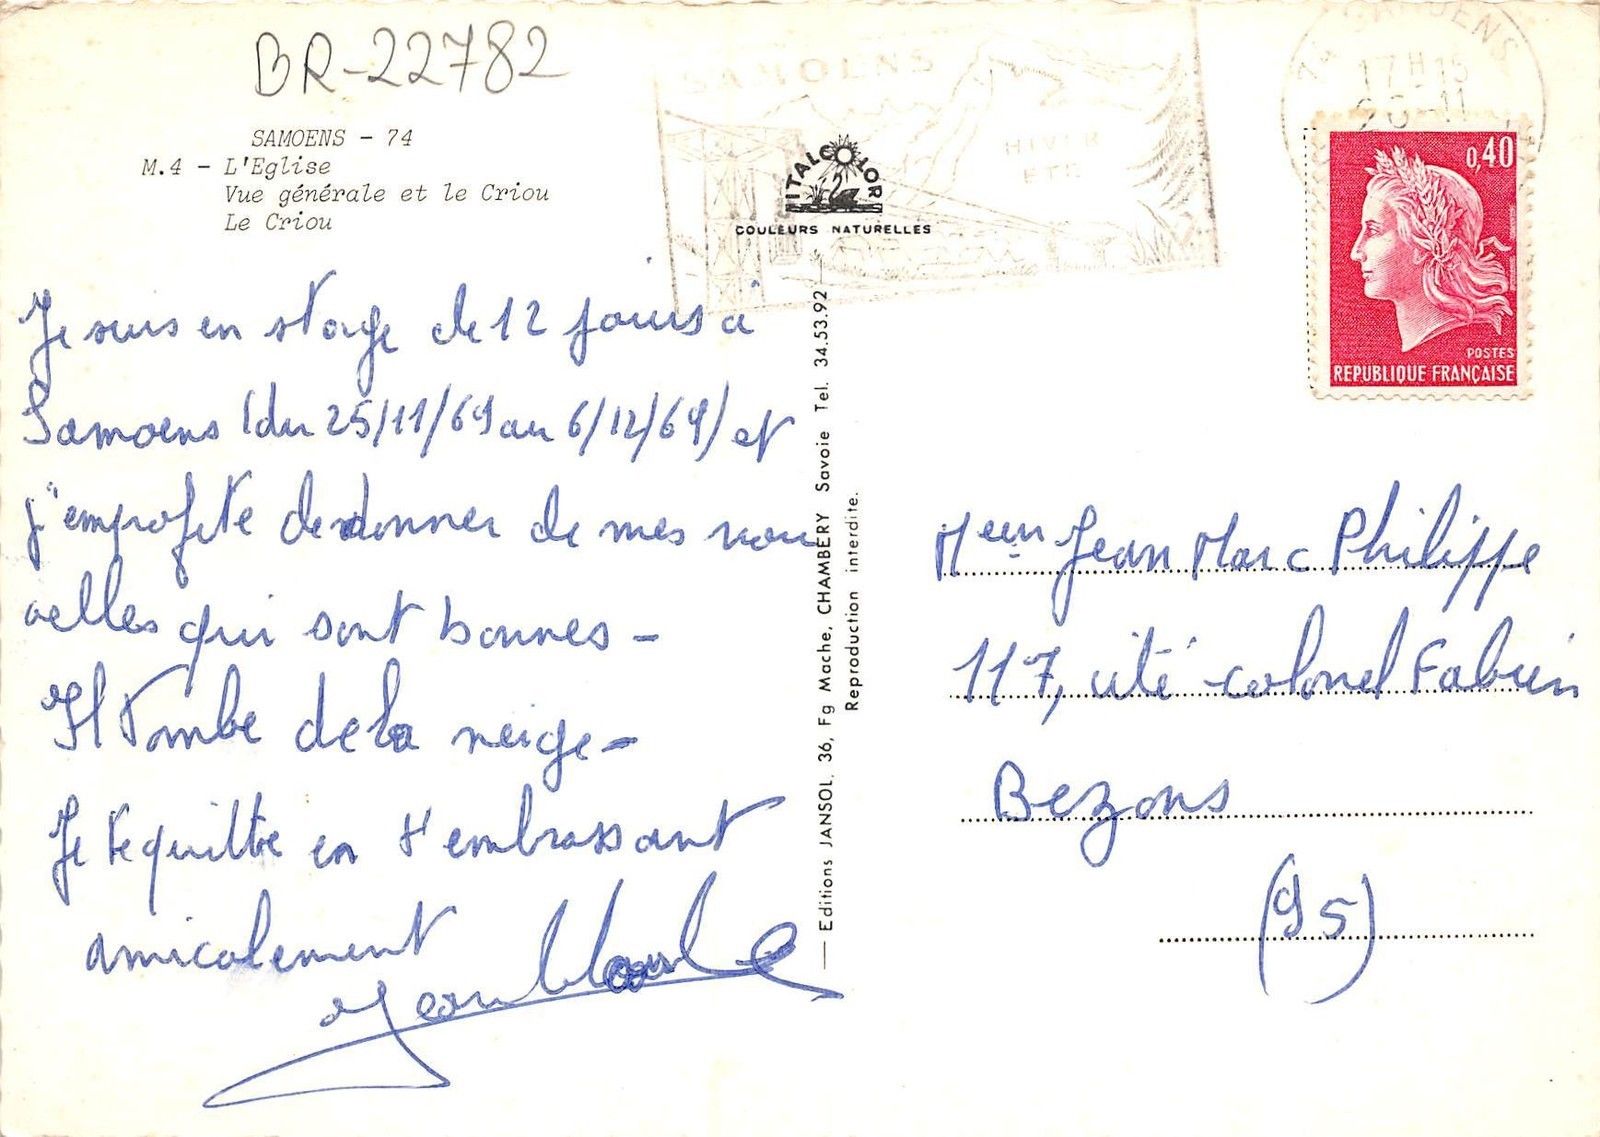 BR-22782
SAMOENS - 74
M.4 - L'Eglise
Vue générale et le Criou
Le Criou
SAMOENS
HIVER
ETE
ITALCOLOR
COULEURS NATURELLES
SAMOENS
17H15
11
0,40
POSTES
REPUBLIQUE FRANÇAISE
Je suis en stage de 12 jours à
Samoens (du 25/11/69 au 6/12/69) et
j'emprofite de donner de mes nou
velles qui sont bonnes -
Il tombe de la neige -
Je te quitte en t'embrassant
amicalement
Jean
Editions JANSOL, 36, Fg Mache, CHAMBERY Savoie Tel. 34.53.92
Reproduction interdite.
Jean Marc Philippe
117, cité colonel Fabien
Bezons
(95)